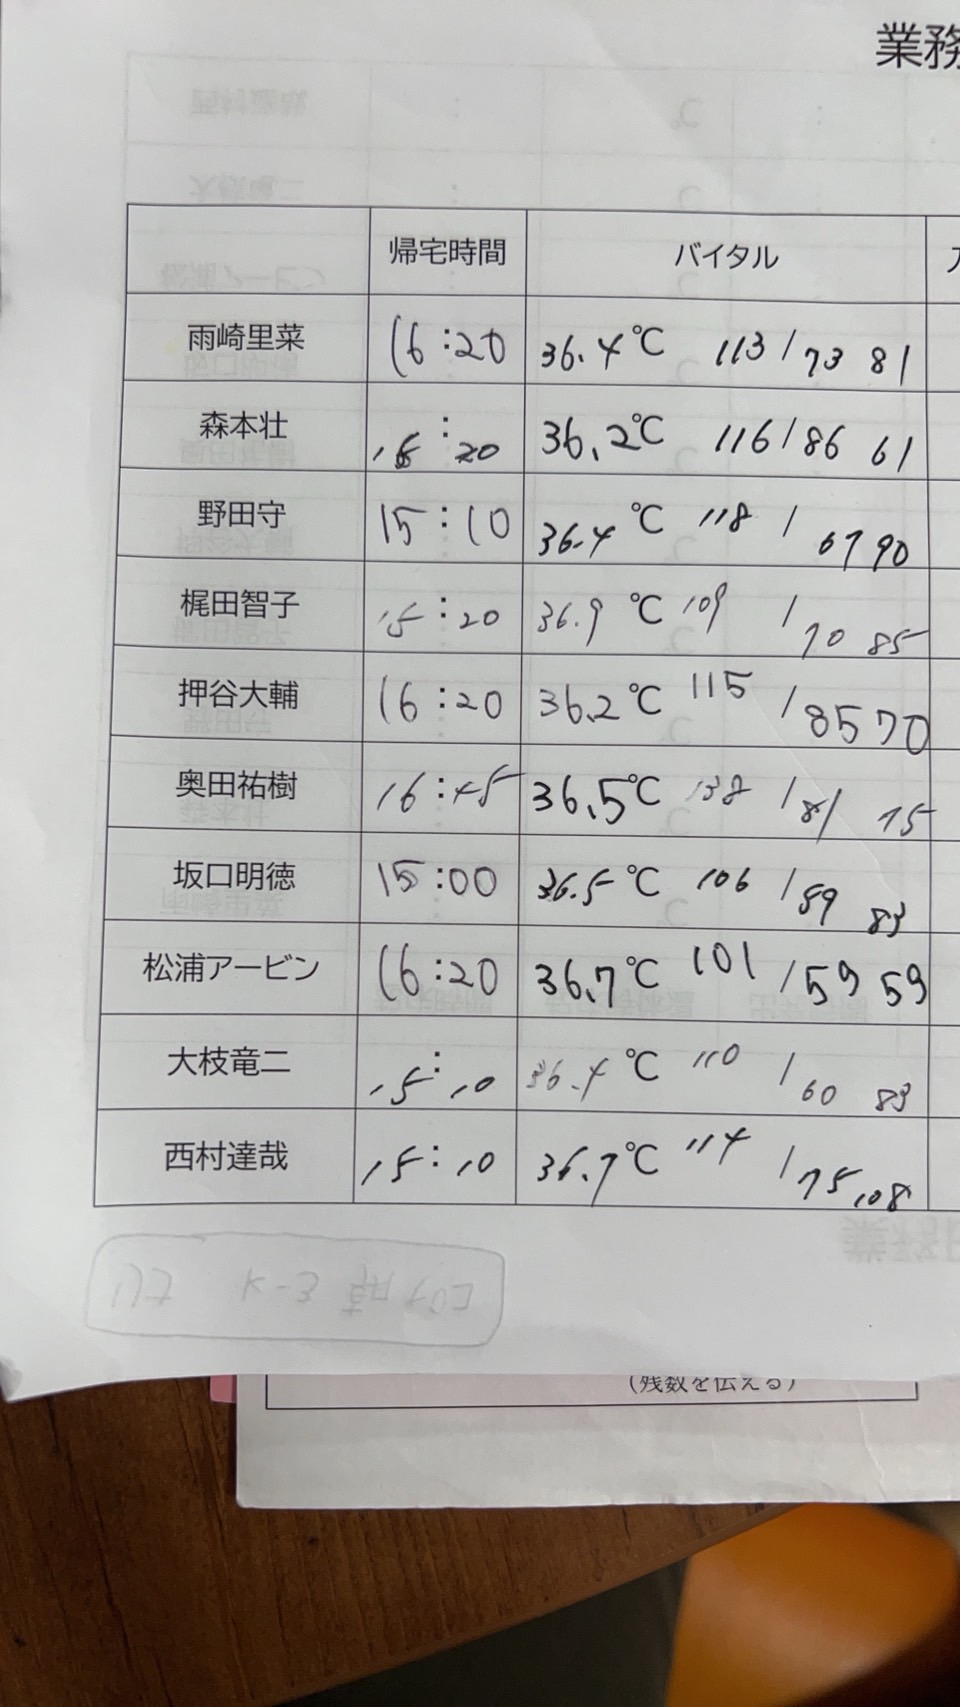 業務
帰宅時間 バイタル
雨崎里菜 16:20 36.4℃ 113/73 81
森本壮 :20 36.2℃ 116/86 61
野田守 15:10 36.4℃ 118/67 90
梶田智子 15:20 36.9℃ 109/70 85
押谷大輔 16:20 36.2℃ 115/85 70
奥田祐樹 16:45 36.5℃ 138/81 75
坂口明徳 15:00 36.5℃ 106/59 83
松浦アービン 16:20 36.7℃ 101/59 59
大枝竜二 15:10 36.4℃ 110/60 83
西村達哉 15:10 36.7℃ 114/75 108
(残数を伝える)